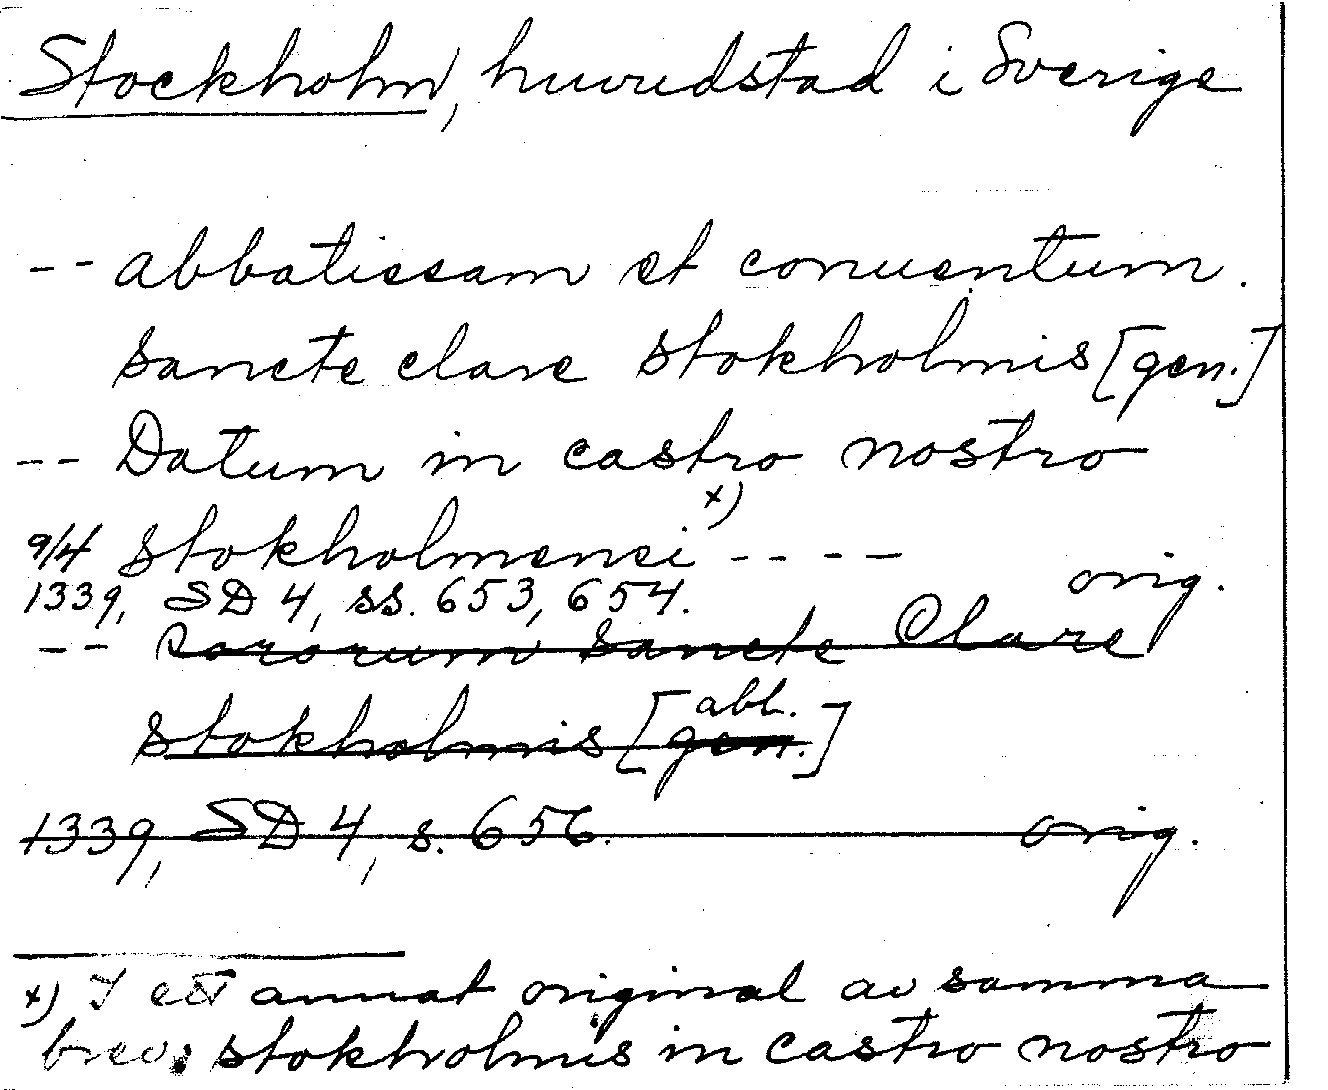 Stockholm, huvudstad i Sverige
-- abbatissam et conuentum.
sancte clare stokholmis [gen.]
-- Datum in castro nostro
9/4 stokholmensi x) ----
orig.
1339, SD 4, ss. 653, 654.
-- Sororum sancte Clare
abl.
stokholmis [gen.]
1339, SD 4, s. 656. orig.
x) I ett annat original av samma
brev: stokholmis in castro nostro